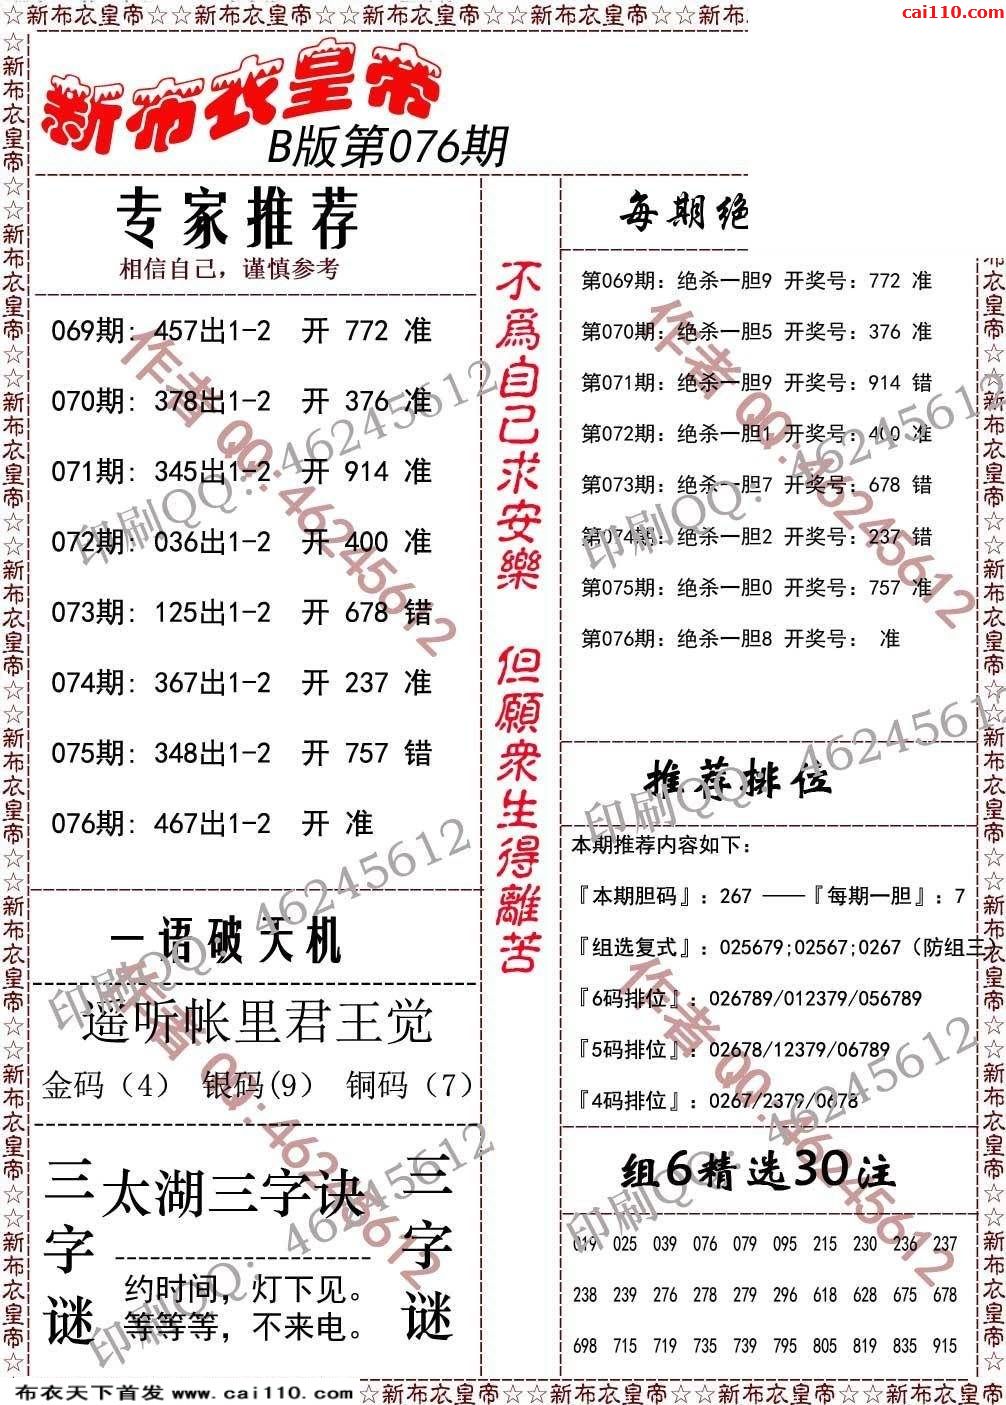 ☆新布衣皇帝☆☆新布衣皇帝☆☆新布衣皇帝☆☆新布衣皇帝☆☆新布
cai110.com
新布衣皇帝
B版第076期
专家推荐
相信自己，谨慎参考
069期: 457出1-2 开 772 准
070期: 378出1-2 开 376 准
071期: 345出1-2 开 914 准
072期: 036出1-2 开 400 准
073期: 125出1-2 开 678 错
074期: 367出1-2 开 237 准
075期: 348出1-2 开 757 错
076期: 467出1-2 开 准
一语破天机
遥听帐里君王觉
金码（4） 银码(9） 铜码（7）
三字谜
太湖三字诀
约时间，灯下见。
等等等，不来电。
三字谜
不爲自己求安樂 但願衆生得離苦
每期绝
第069期: 绝杀一胆9 开奖号: 772 准
第070期: 绝杀一胆5 开奖号: 376 准
第071期: 绝杀一胆9 开奖号: 914 错
第072期: 绝杀一胆1 开奖号: 400 准
第073期: 绝杀一胆7 开奖号: 678 错
第074期: 绝杀一胆2 开奖号: 237 错
第075期: 绝杀一胆0 开奖号: 757 准
第076期: 绝杀一胆8 开奖号: 准
推荐排位
本期推荐内容如下:
『本期胆码』: 267 ——『每期一胆』: 7
『组选复式』: 025679;02567;0267（防组三）
『6码排位』: 026789/012379/056789
『5码排位』: 02678/12379/06789
『4码排位』: 0267/2379/0678
组6精选30注
019 025 039 076 079 095 215 230 236 237
238 239 276 278 279 296 618 628 675 678
698 715 719 735 739 795 805 819 835 915
作者 QQ: 46245612
印刷QQ: 46245612
作者 QQ: 46245612
印刷QQ: 46245612
作者 QQ: 46245612
印刷QQ: 46245612
作者 QQ: 46245612
印刷QQ: 46245612
印刷QQ: 46245612
印刷QQ: 46245612
☆新布衣皇帝☆☆新布衣皇帝☆☆新布衣皇帝☆☆新布衣皇帝☆☆新布衣皇帝☆☆新布衣皇帝☆☆新布衣皇帝☆☆新布衣皇帝☆
布衣皇帝☆☆新布衣皇帝☆☆新布衣皇帝☆☆新布衣皇帝☆☆新布衣皇帝☆☆新布衣皇帝☆☆新布衣皇帝☆
布衣天下首发 www.cai110.com
☆新布衣皇帝☆☆新布衣皇帝☆☆新布衣皇帝☆☆新布衣皇帝☆